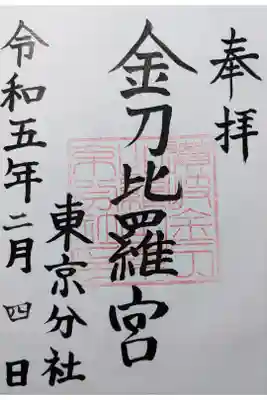 奉拝
金刀比羅宮
東京分社
令和五年二月四日